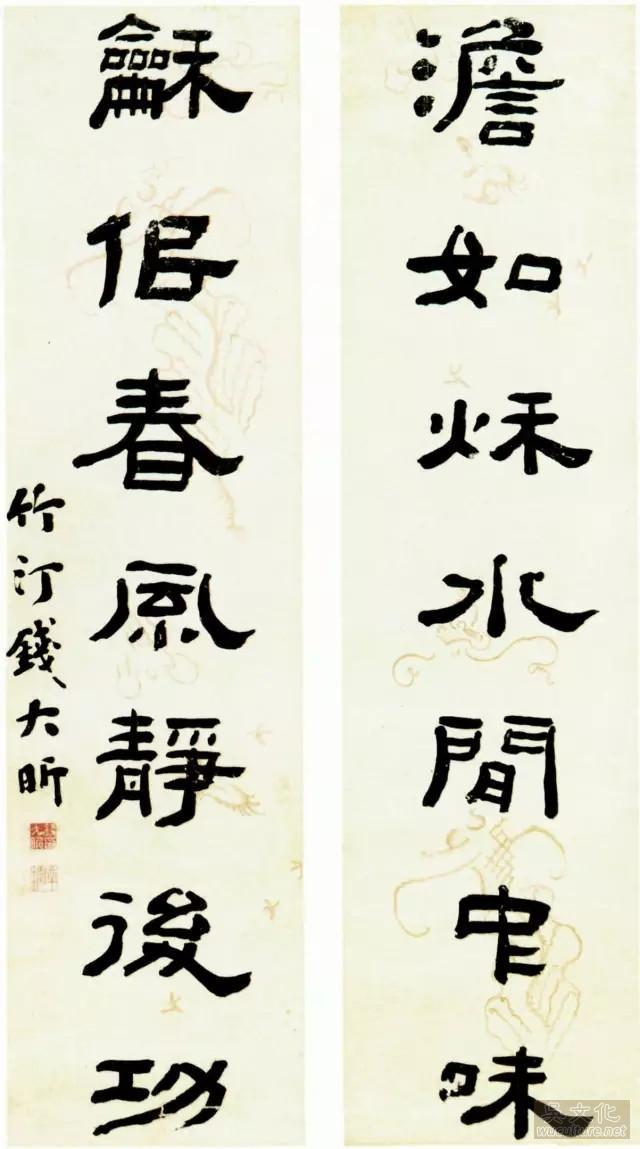 澹如秌水閒中味
龢佀春風靜後功
竹汀錢大昕
吳文化
www.wuculture.net